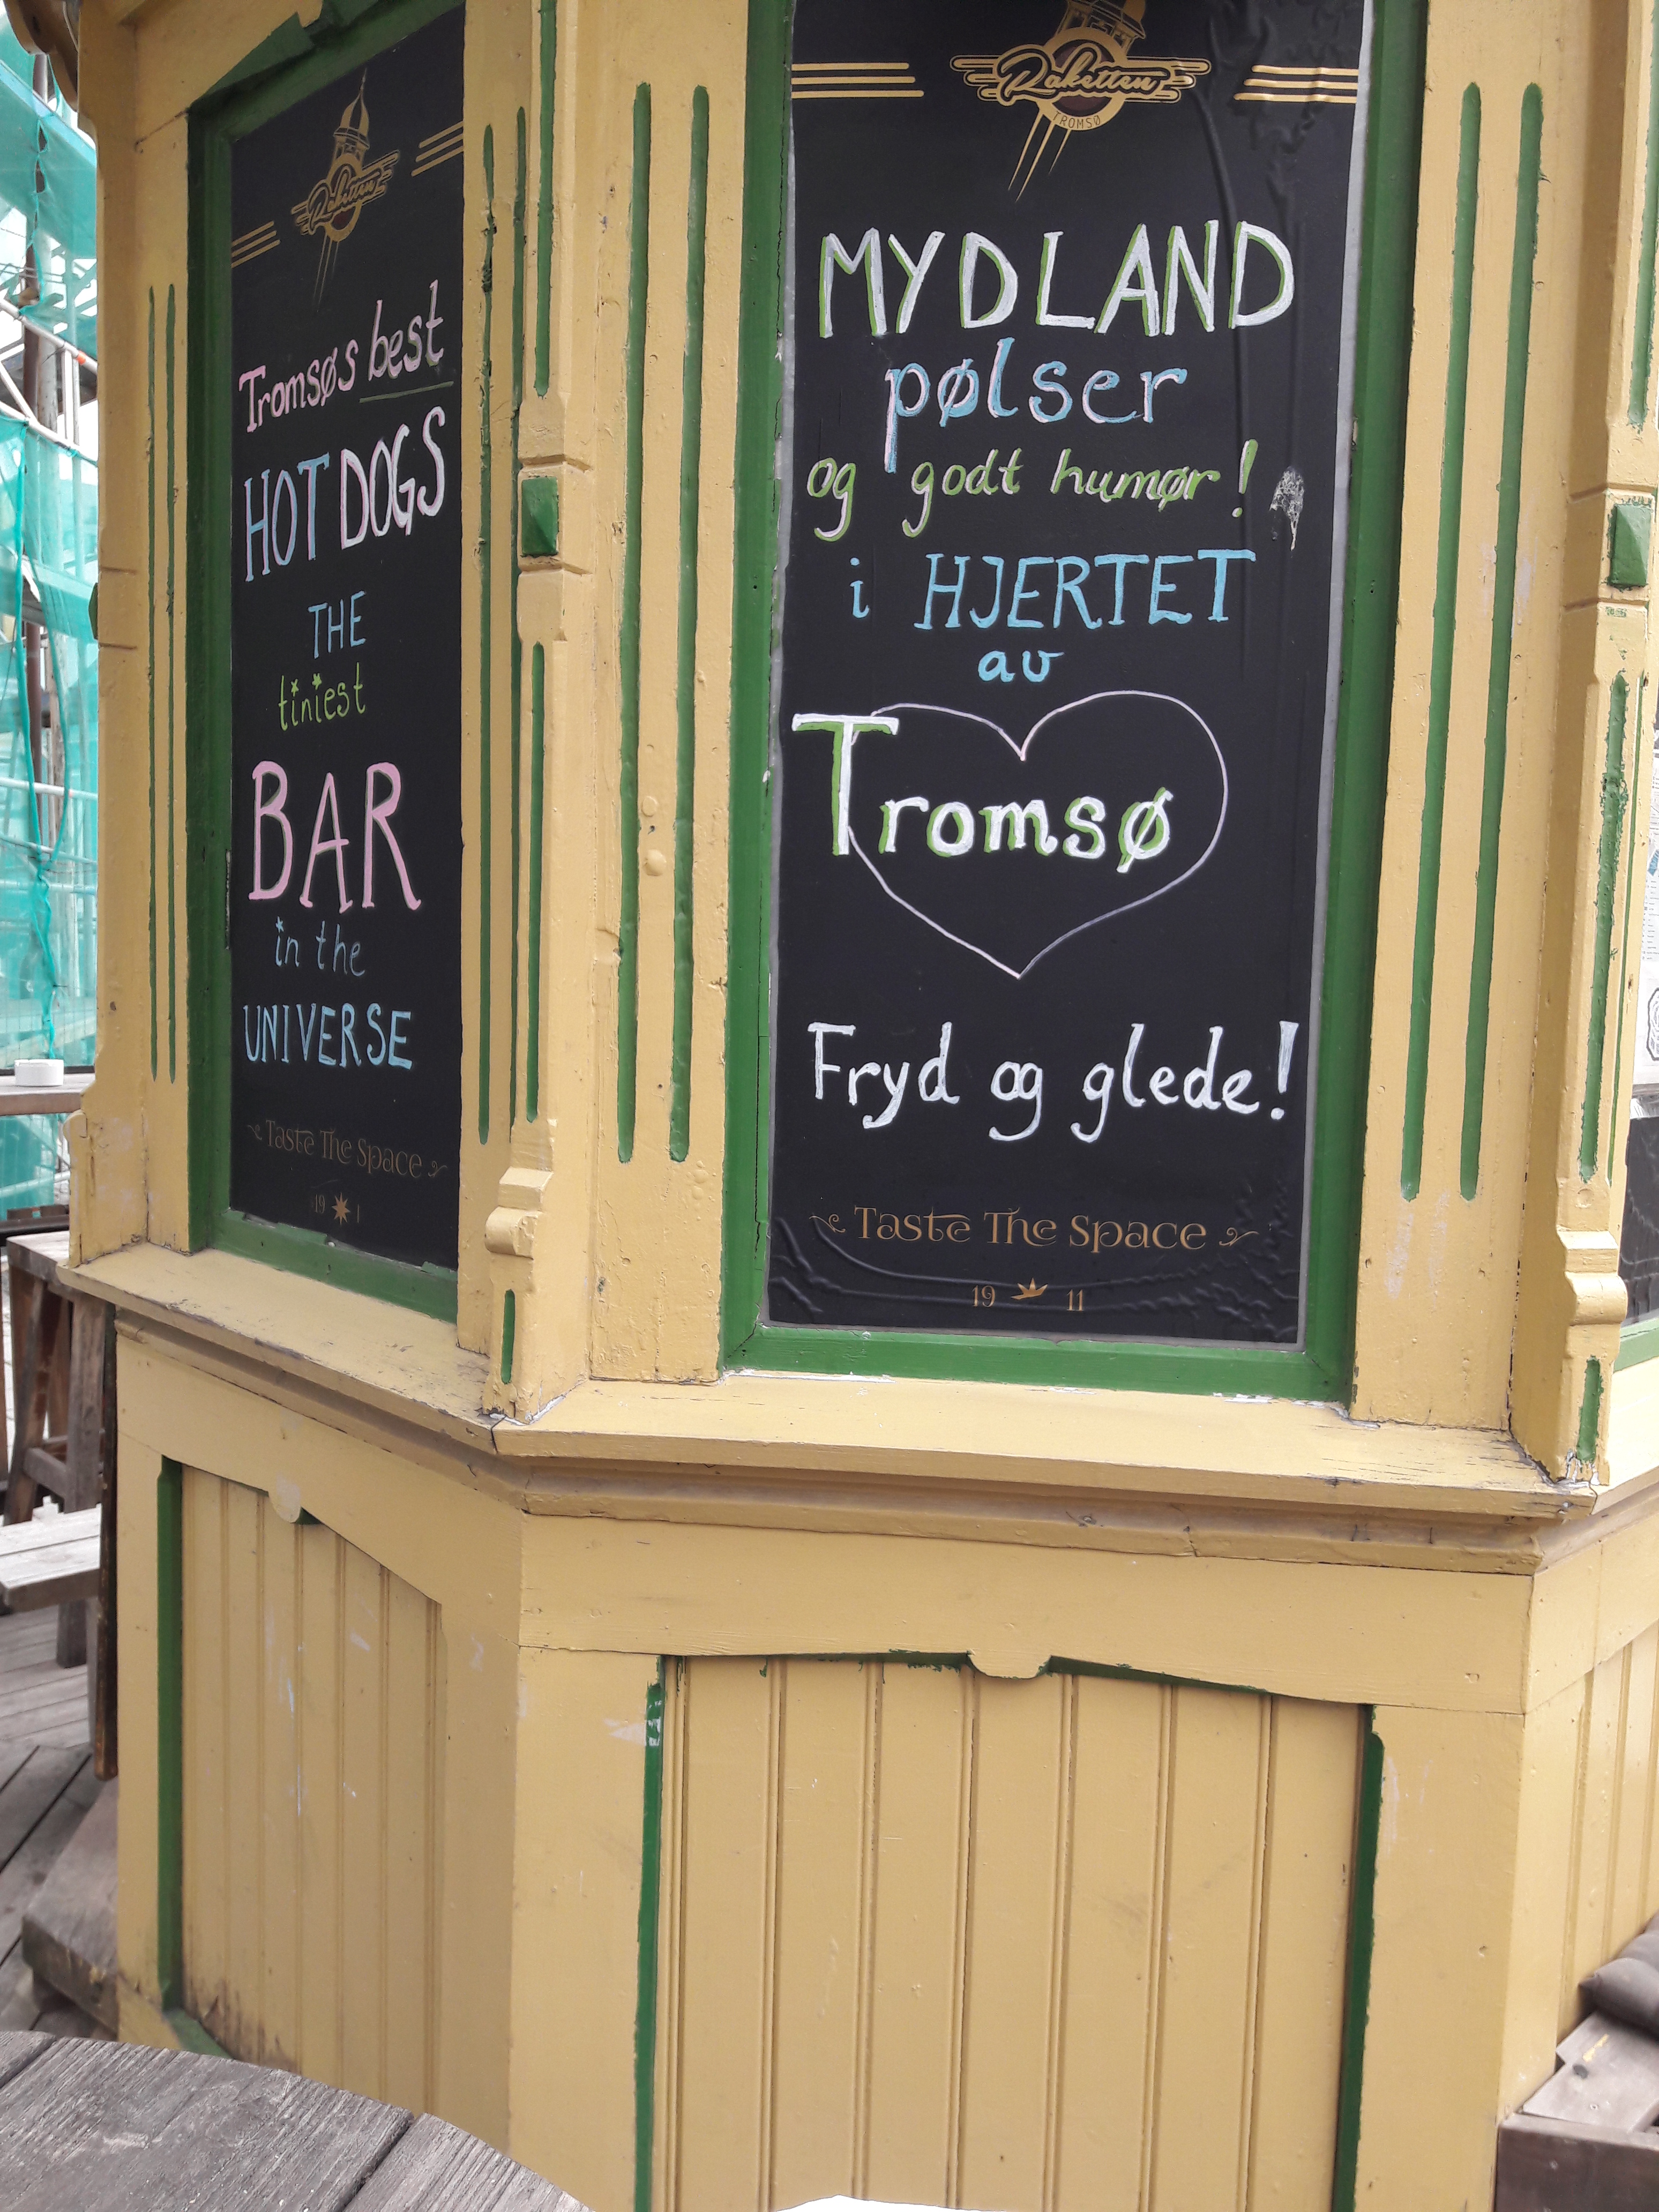 Raketten
Tromsøs best
HOT DOGS
THE
tiniest
BAR
in the
UNIVERSE
Taste The Space
19 1
Raketten
TROMSØ
MYDLAND
pølser
og godt humør!
i HJERTET
av
Tromsø
Fryd og glede!
Taste The Space
19 11